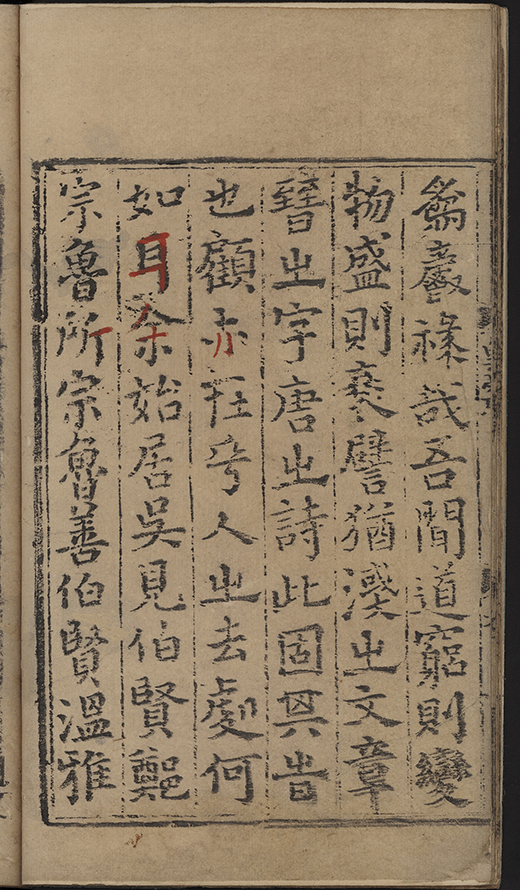 爲麗祿哉吾聞道窮則變
物盛則衰譬猶漢㞢文章
晉㞢字唐㞢詩此固其旹
也顧亦在乎人㞢去處何
如耳余始居吳見伯賢鄭
宗魯所宗魯善伯賢溫雅